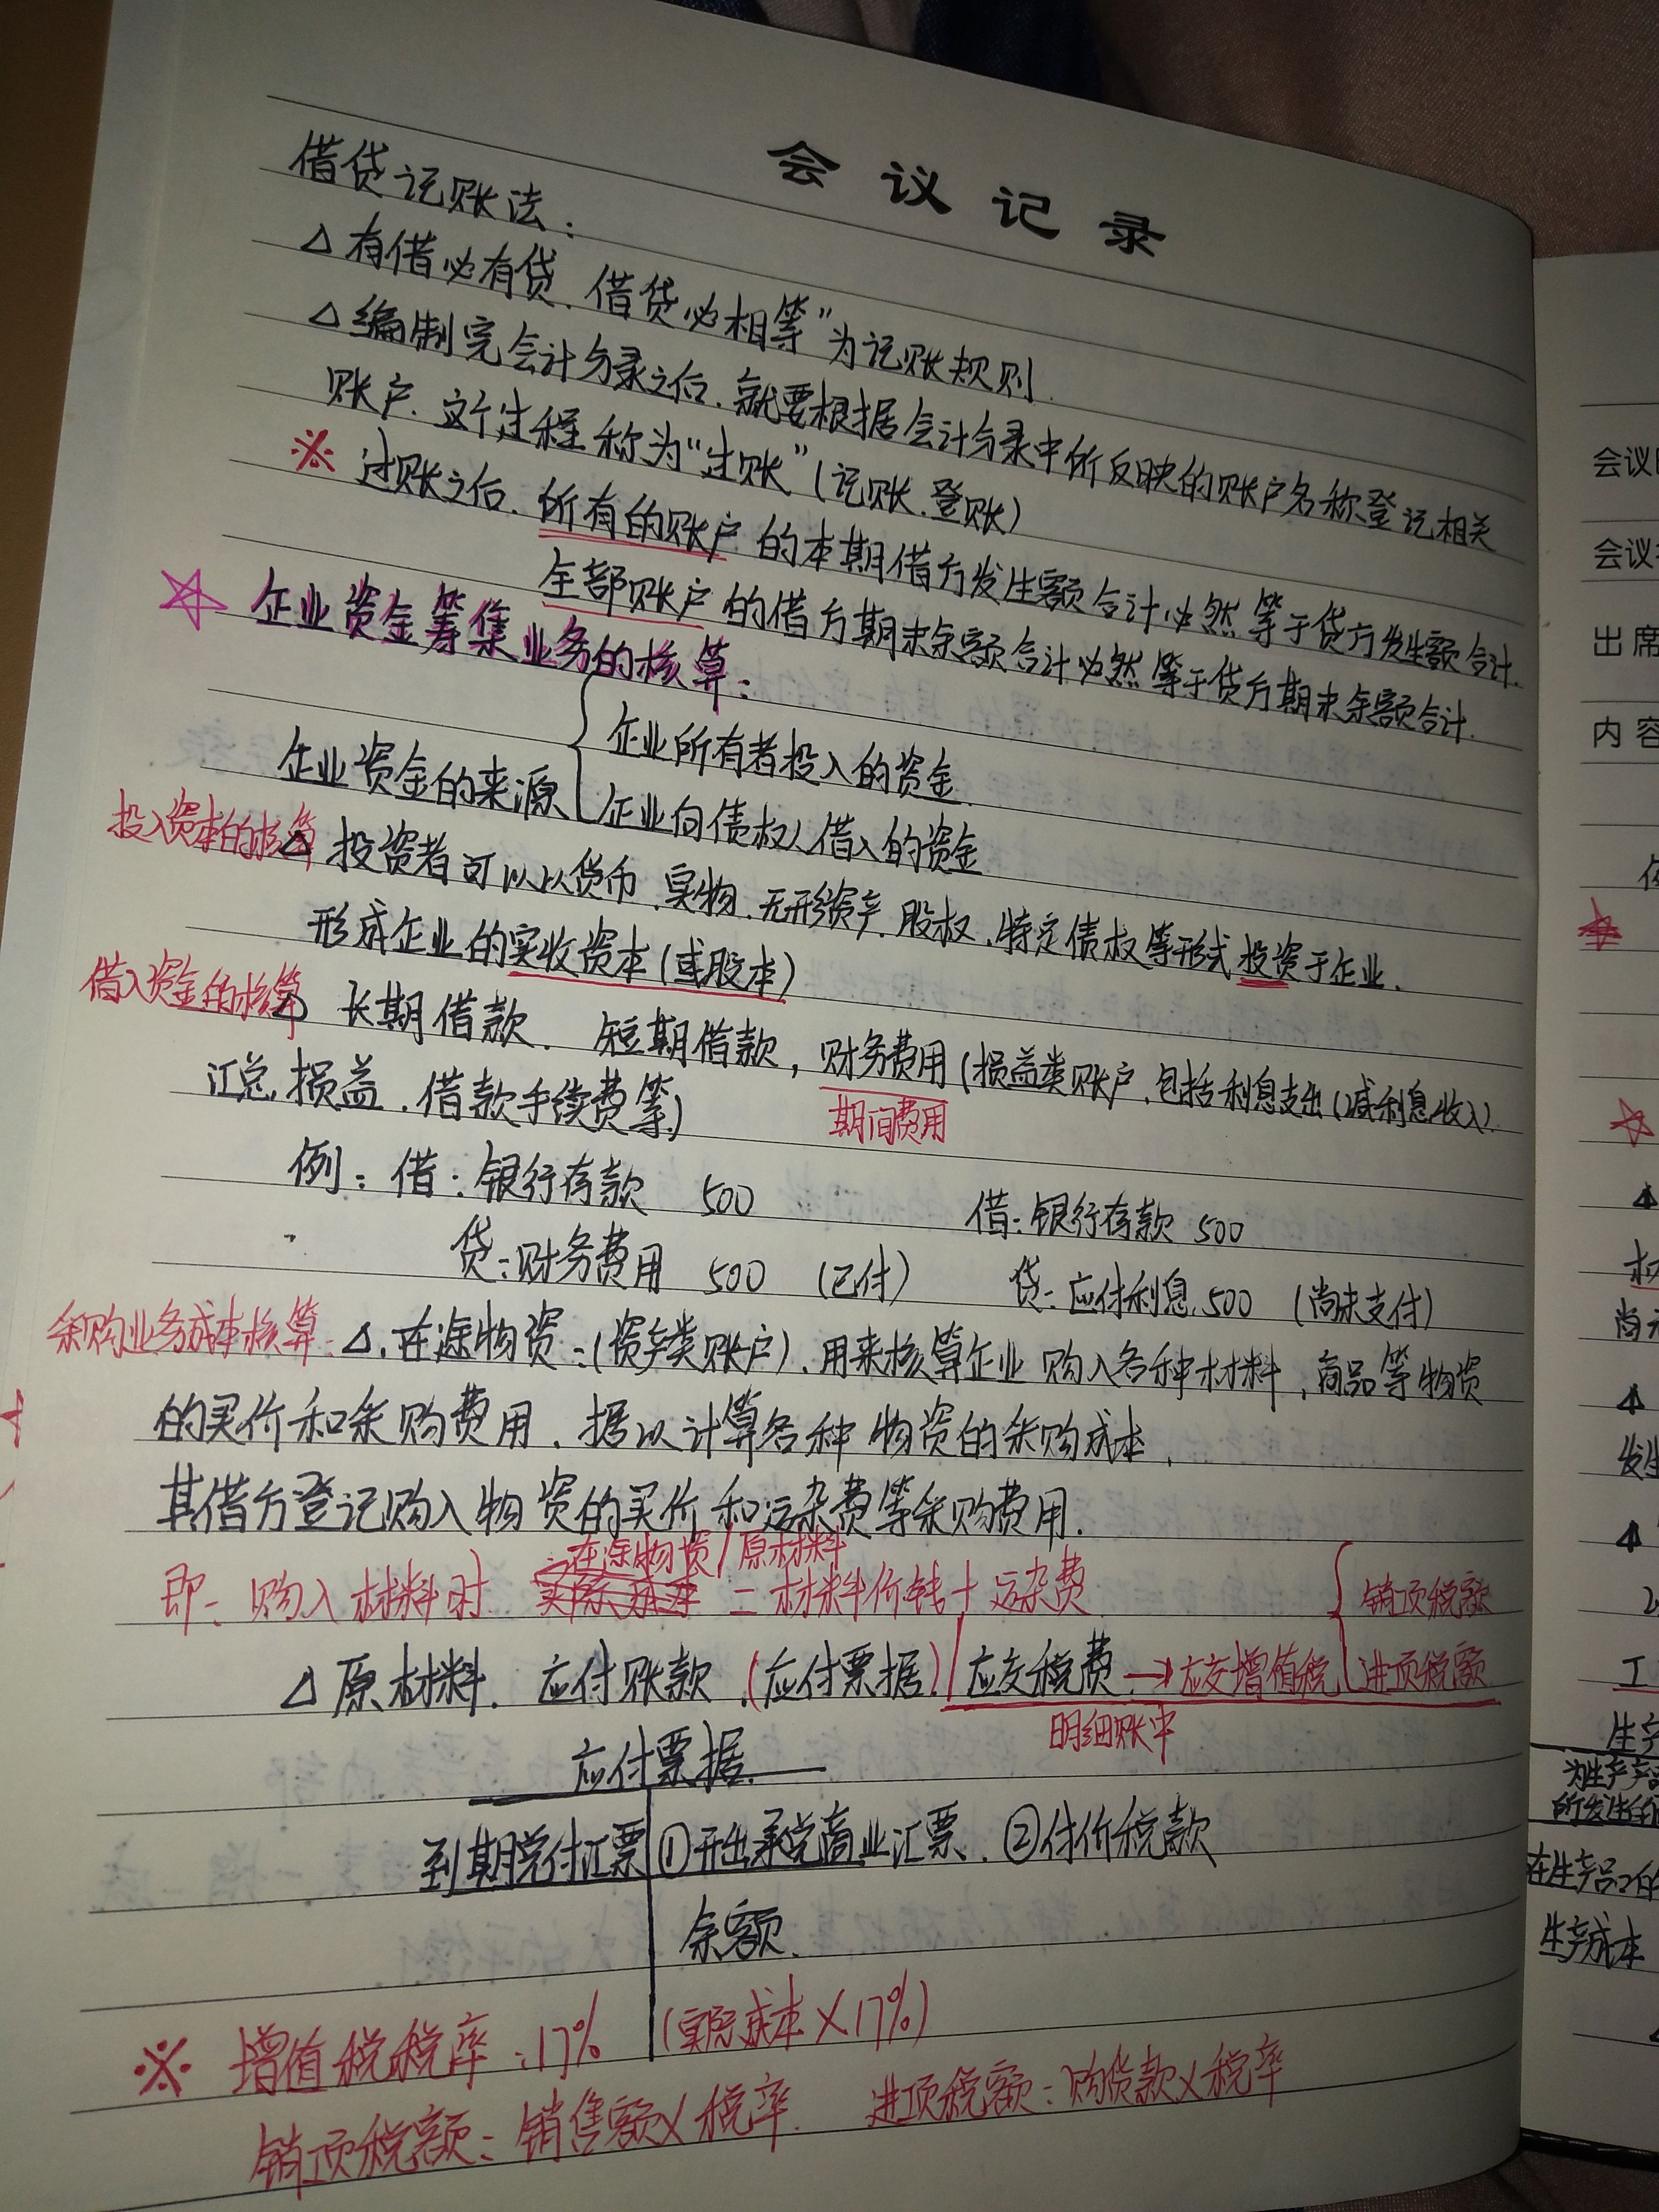 会议记录
借贷记账法:
△有借必有贷.借贷必相等"为记账规则.
△编制完会计分录之后.就要根据会计分录中所反映的账户名称登记相关
账户.这个过程称为"过账"(记账.登账)
※ 过账之后.所有的账户的本期借方发生额合计必然等于贷方发生额合计.
全部账户的借方期末余额合计必然等于贷方期末余额合计.
☆ 企业资金筹集业务的核算:
企业资金的来源
企业所有者投入的资金.
企业向债权人借入的资金
投入资本的核算
△ 投资者可以以货币.实物.无形资产.股权、特定债权等形式投资于企业.
形成企业的实收资本(或股本)
借入资金的核算
△ 长期借款. 短期借款,财务费用(损益类账户.包括利息支出(减利息收入).
汇总.损益.借款手续费等)
期间费用
例:借:银行存款 500 借:银行存款 500
贷:财务费用 500 (已付) 贷:应付利息.500 (尚未支付)
采购业务成本核算:△.在途物资:(资产类账户).用来核算企业购入各种材料、商品等物资
的买价和采购费用.据以计算各种物资的采购成本.
其借方登记购入物资的买价和运杂费等采购费用.
在途物资/原材料
即:购入材料时 = 材料价钱+运杂费
销项税额
△原材料. 应付账款.(应付票据)/应交税费→应交增值税 进项税额
明细账中
应付票据.
到期兑付汇票 ①开出承兑商业汇票.②付价税款
余额.
※ 增值税税率:17% (实际成本×17%)
销项税额:销售额×税率. 进项税额:购货款×税率
会议
会议
出席
内容
尚
发生
工
生产
为生产产品
所发生的
在生产品
生产成本